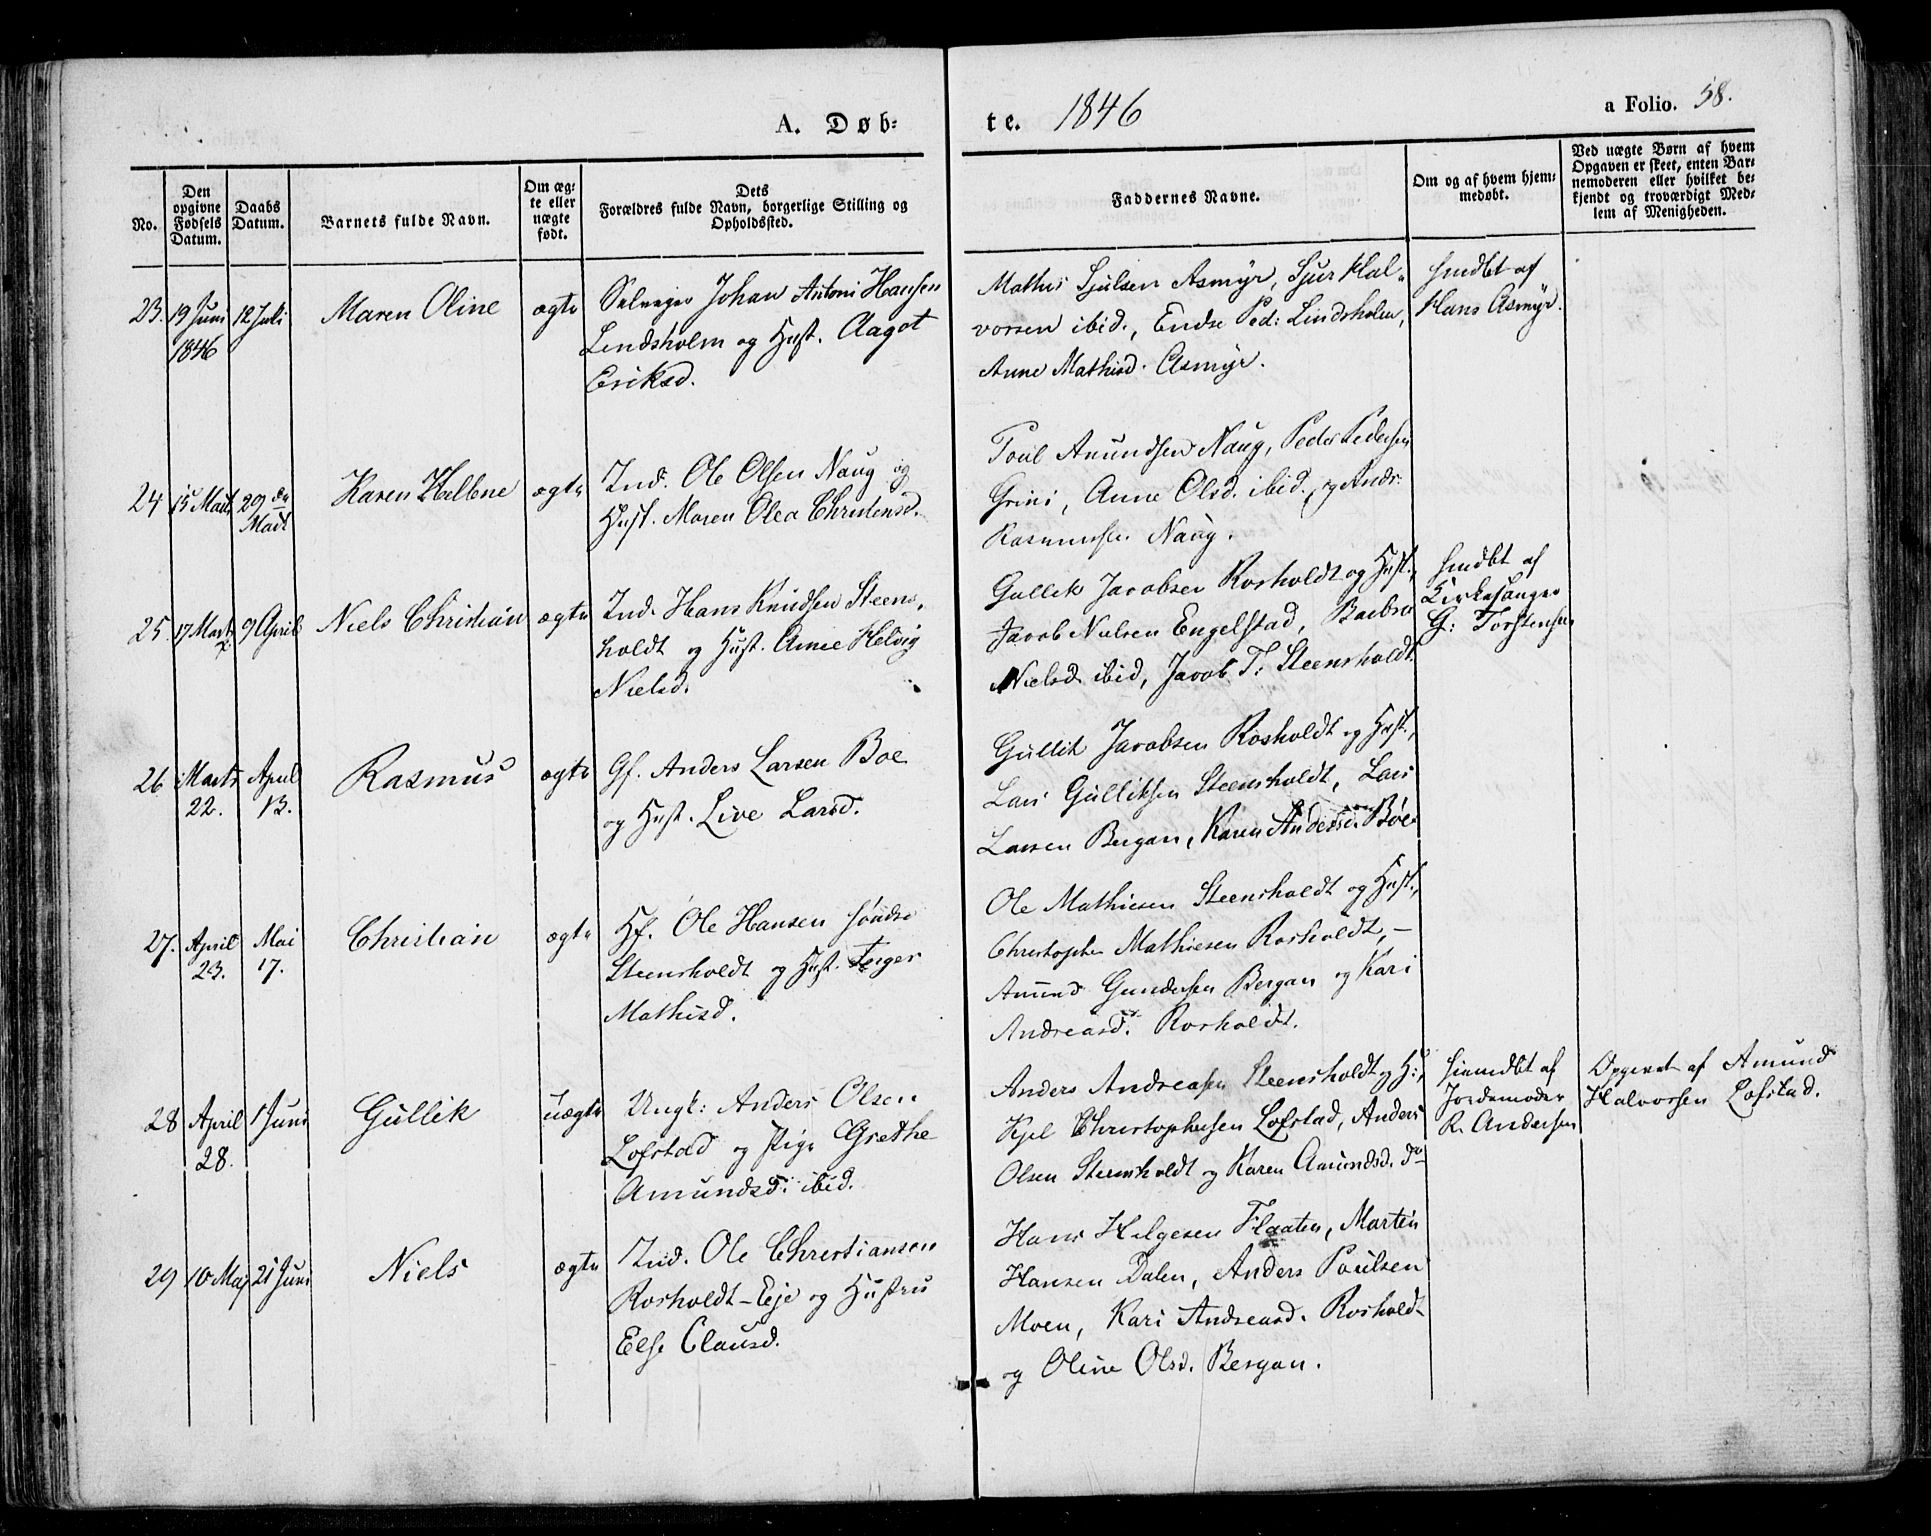 A. Døb-
te. 1846
a Folio. 58.
No.
Den opgivne Fødsels Datum.
Daabs Datum.
Barnets fulde Navn.
Om ægte eller uægte født.
Dets Forældres fulde Navn, borgerlige Stilling og Opholdssted.
Faddernes Navne.
Om og af hvem hjemmedøbt.
Ved uægte Børn af hvem Opgaven er skeet, enten Barnemoderen eller hvilket bekjendt og troværdigt Medlem af Menigheden.
23. 19 Juni 1846
12 Juli
Maren Oline
ægte
Selveger Johan Antoni Hansen
Lindsholm og Hust. Aagot
Eriksd.
Mathis Sjulsen Asmyr, Sjur Hal-
vorsen ibid., Endre Ped: Lindsholm,
Anne Mathisd. Asmyr.
hmdbt af
Hans Asmyr.
24 15 Mart.
29de Mart
Karen Hellene
ægte
Ind. Ole Olsen Naug og
Hust. Maren Olea Christensd.
Poul Amundsen Naug, Peder Pedersen
Grini, Anne Olsd. ibid. og Andr.
Rasmussen Naug.
25 17 Marts
9 April
Niels Christian
ægte
Ind. Hans Knudsen Steens-
holdt og Hust. Anne Helvig
Nielsd.
Gullik Jacobsen Rosholdt og Hust.,
Jacob Nielsen Engelstad, Barbro
Nielsd ibid, Jacob T: Steensholdt
hmdbt af
Kirkesanger
G: Torstensen
26 Marts 22.
April 13.
Rasmus
ægte
Gf. Anders Larsen Boe
og Hust. Live Larsd.
Gullik Jacobsen Rosholdt og Hust.,
Lars Gulliksen Steensholdt, Lars
Larsen Bergan, Karen Andersd. Böe
27. April 23.
Mai 17.
Christian
ægte
Hf. Ole Hansen söndre
Steensholdt og Hust. Torger
Mathisd.
Ole Mathiesen Steensholdt og Hust.,
Christopher Mathiesen Rosholdt, –
Amund Gundersen Bergan og Kari
Andreasd. Rosholdt.
28 April 28.
1 Juni
Gullik
uægte
Ungk: Anders Olsen
Lofstad og Pige Grethe
Amundsd. ibid.
Anders Andreasen Steensholdt og H:,
Kjel Christophersen Lofstad, Anders
Olsen Steensholdt og Karen Amundsd. do
hiemdbt af
Jordemoder
R. Andersen
Opgivet af Amund
Halvorsen Lofstad.
29 10 Maj
21 Juni
Niels
ægte
Ind. Ole Christiansen
Rosholdt-Eje og Hustru
Else Clausd.
Hans Helgesen Flaaten, Martin
Hansen Dalen, Anders Poulsen
Moen, Kari Andreasd. Rosholdt
og Oline Olsd. Bergan.